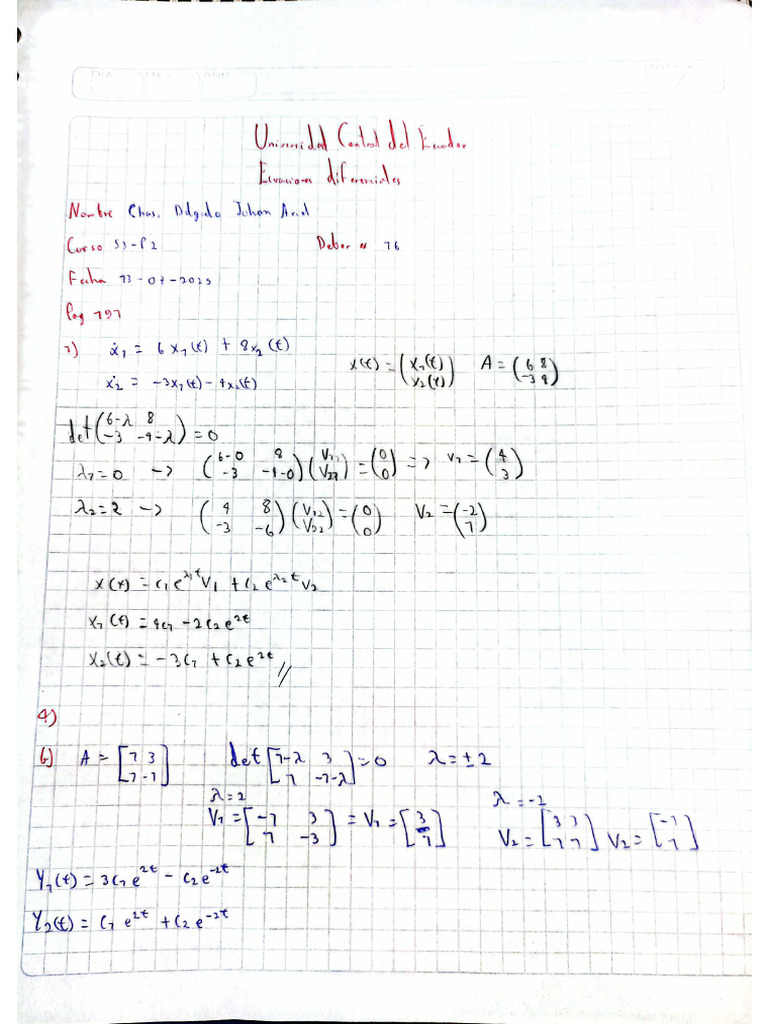 Universidad Central del Ecuador
Ecuaciones diferenciales
Nombre Chas. Delgado Johan Ariel
Curso S3-P2 Deber # 16
Fecha 13-07-2025
Pag 191
1) ẋ₁ = 6x₁(t) + 8x₂(t)
ẋ₂ = -3x₁(t) - 4x₂(t)
x(t) = (x₁(t) x₂(t)) A = (6 8 -3 4)
det(6-λ 8 -3 -4-λ) = 0
λ₁=0 -> (6-0 8 -3 -4-0)(V₁₁ V₂₁) = (0 0) => V₁ = (4 3)
λ₂=2 -> (4 8 -3 -6)(V₁₂ V₂₂) = (0 0) V₂ = (-2 1)
x(t) = c₁e^λ₁t V₁ + c₂e^λ₂t V₂
x₁(t) = 4c₁ - 2c₂e^2t
x₂(t) = -3c₁ + c₂e^2t //
4)
b) A = [1 3 1 -1] det[1-λ 3 1 -1-λ] = 0 λ = ±2
λ=2 λ=-2
V₁ = [-1 3 1 -3] = V₁ = [3 1] V₂ = [3 3 1 1] V₂ = [-1 1]
Y₁(t) = 3c₁e^2t - c₂e^-2t
Y₂(t) = c₁e^2t + c₂e^-2t